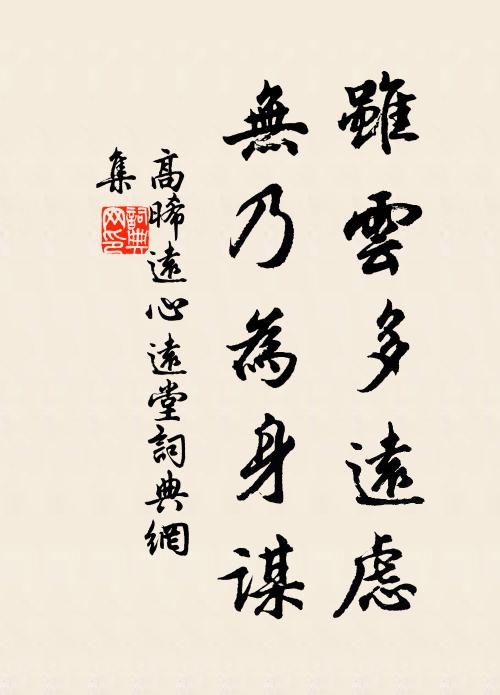 雖雲多遠慮
無乃為身謀
高晞遠心遠堂詞典網
集
詞典
网印